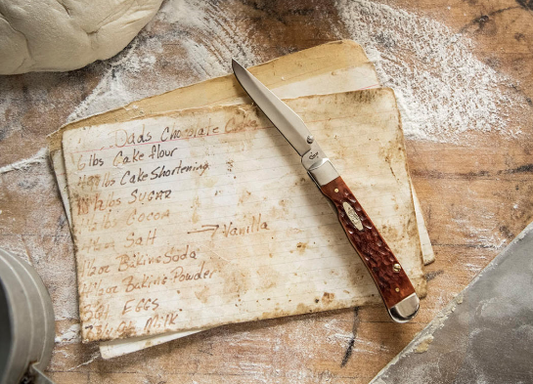 Dads Chocolate
6 lbs Cake flour
lbs Cake Shortening
ozs Sugar
lbs Cocoa
oz Salt → Vanilla
oz Baking Soda
oz Baking Powder
Eggs
Milk